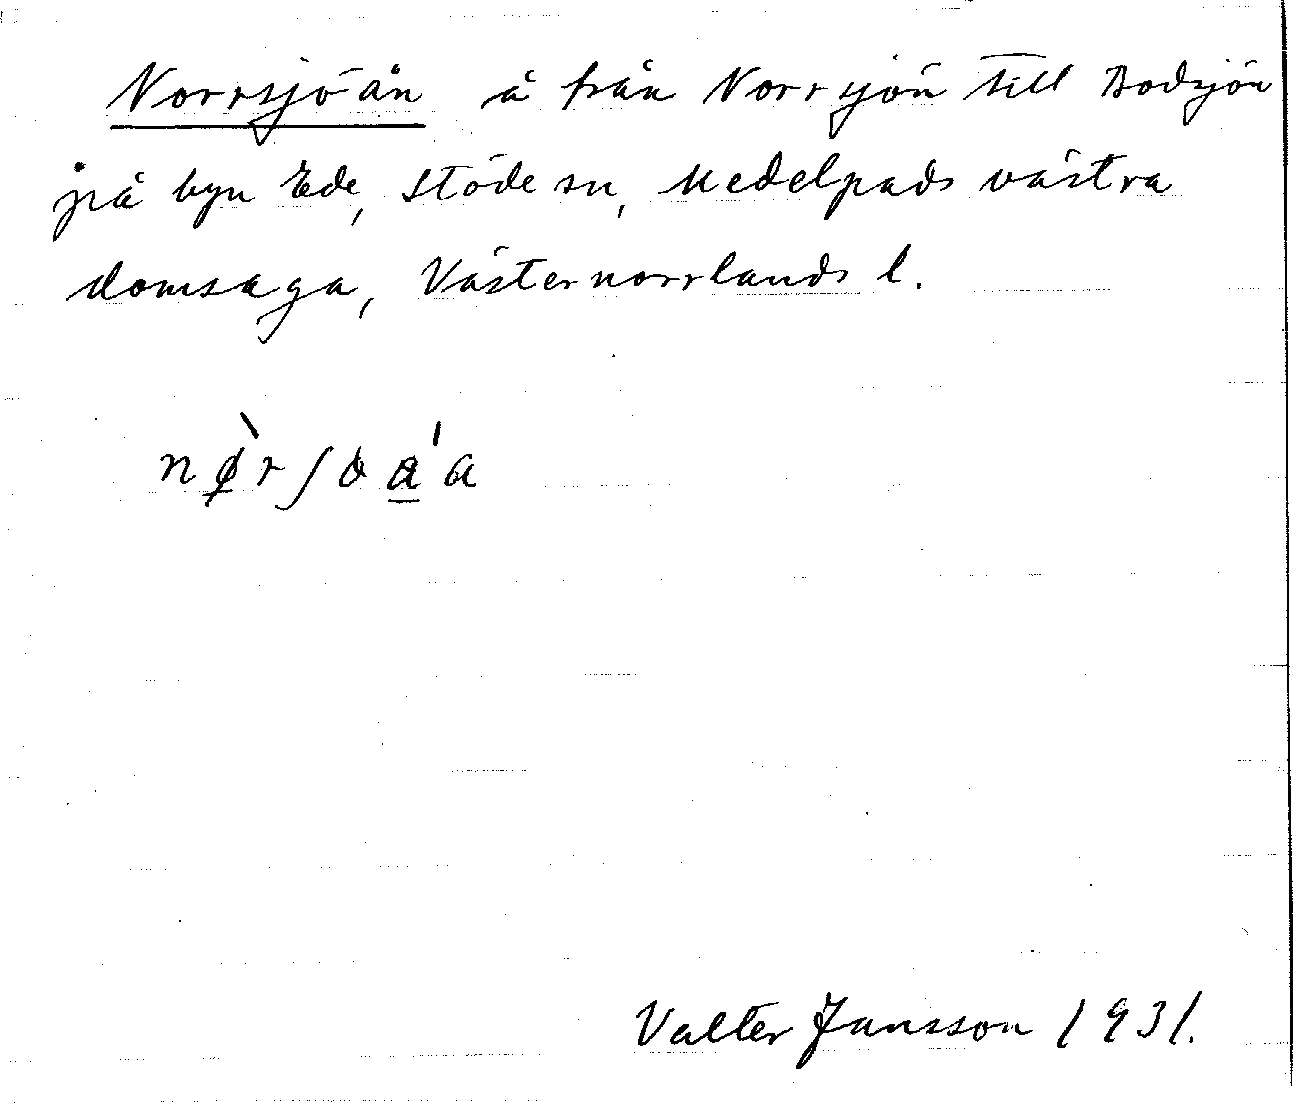 Norrsjöån å från Norrsjön till Bodsjön
på byn Ede, Stöde sn, Medelpads västra
domsaga, Västernorrlands l.
Valter Jansson 1931.